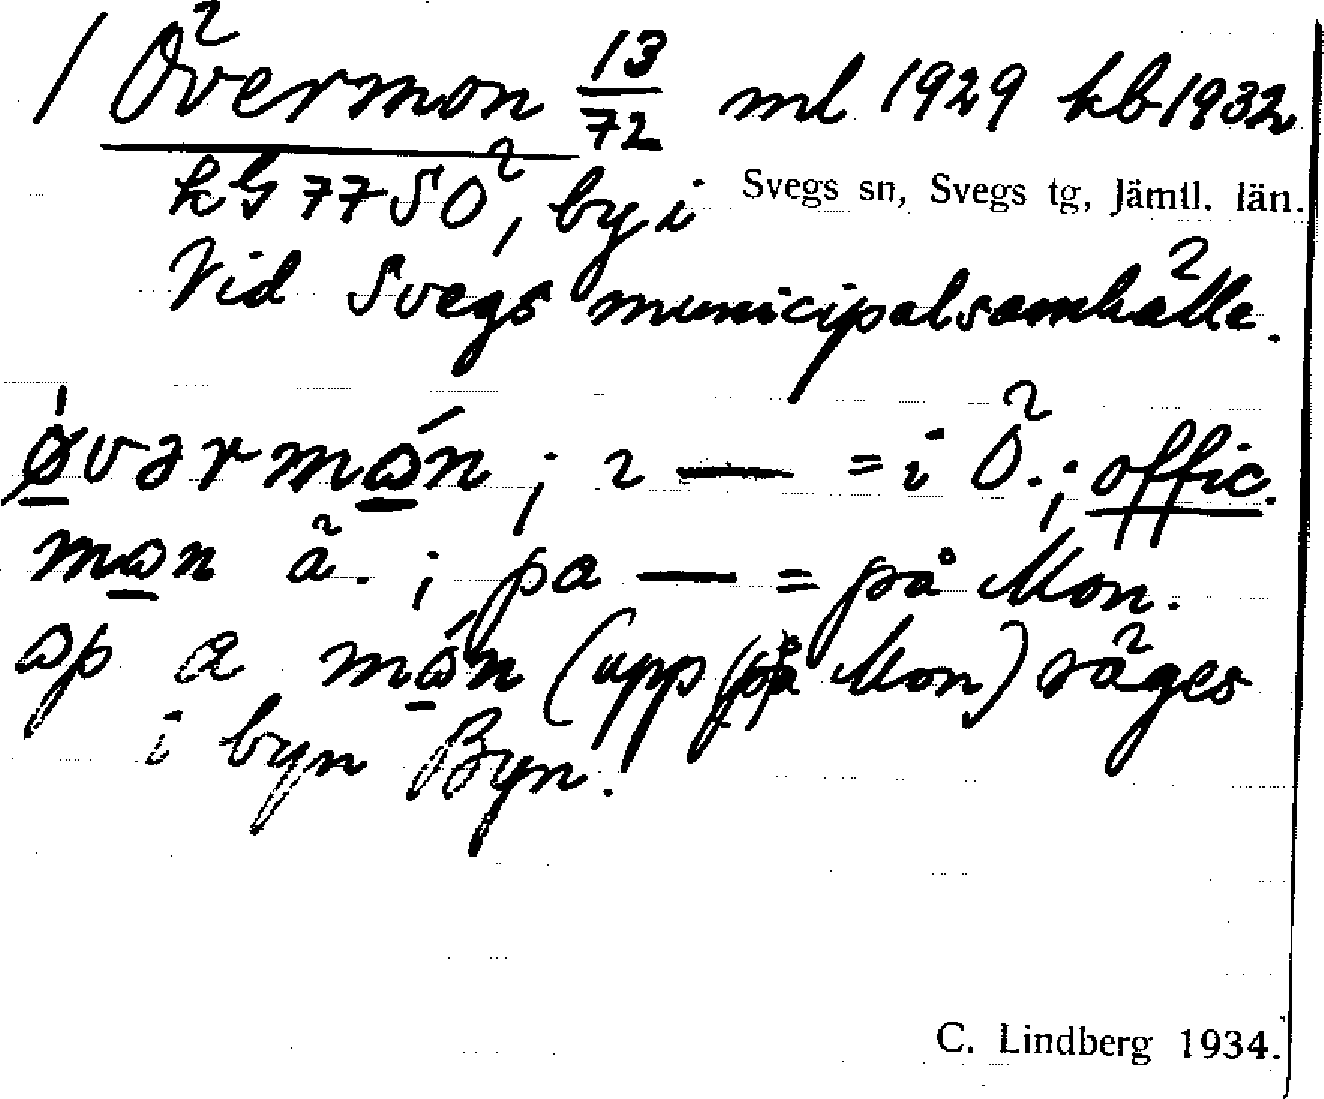 1 Övermon 13/72 ml 1929 kb 1932
kG 77 SÖ, by i Svegs sn, Svegs tg, Jämtl. län.
Vid Svegs municipalsamhälle.
; i — = i Ö.; offic.
ä. ; pa — = på Mon.
(upp på Mon) säges
i byn Byn.
C. Lindberg 1934.